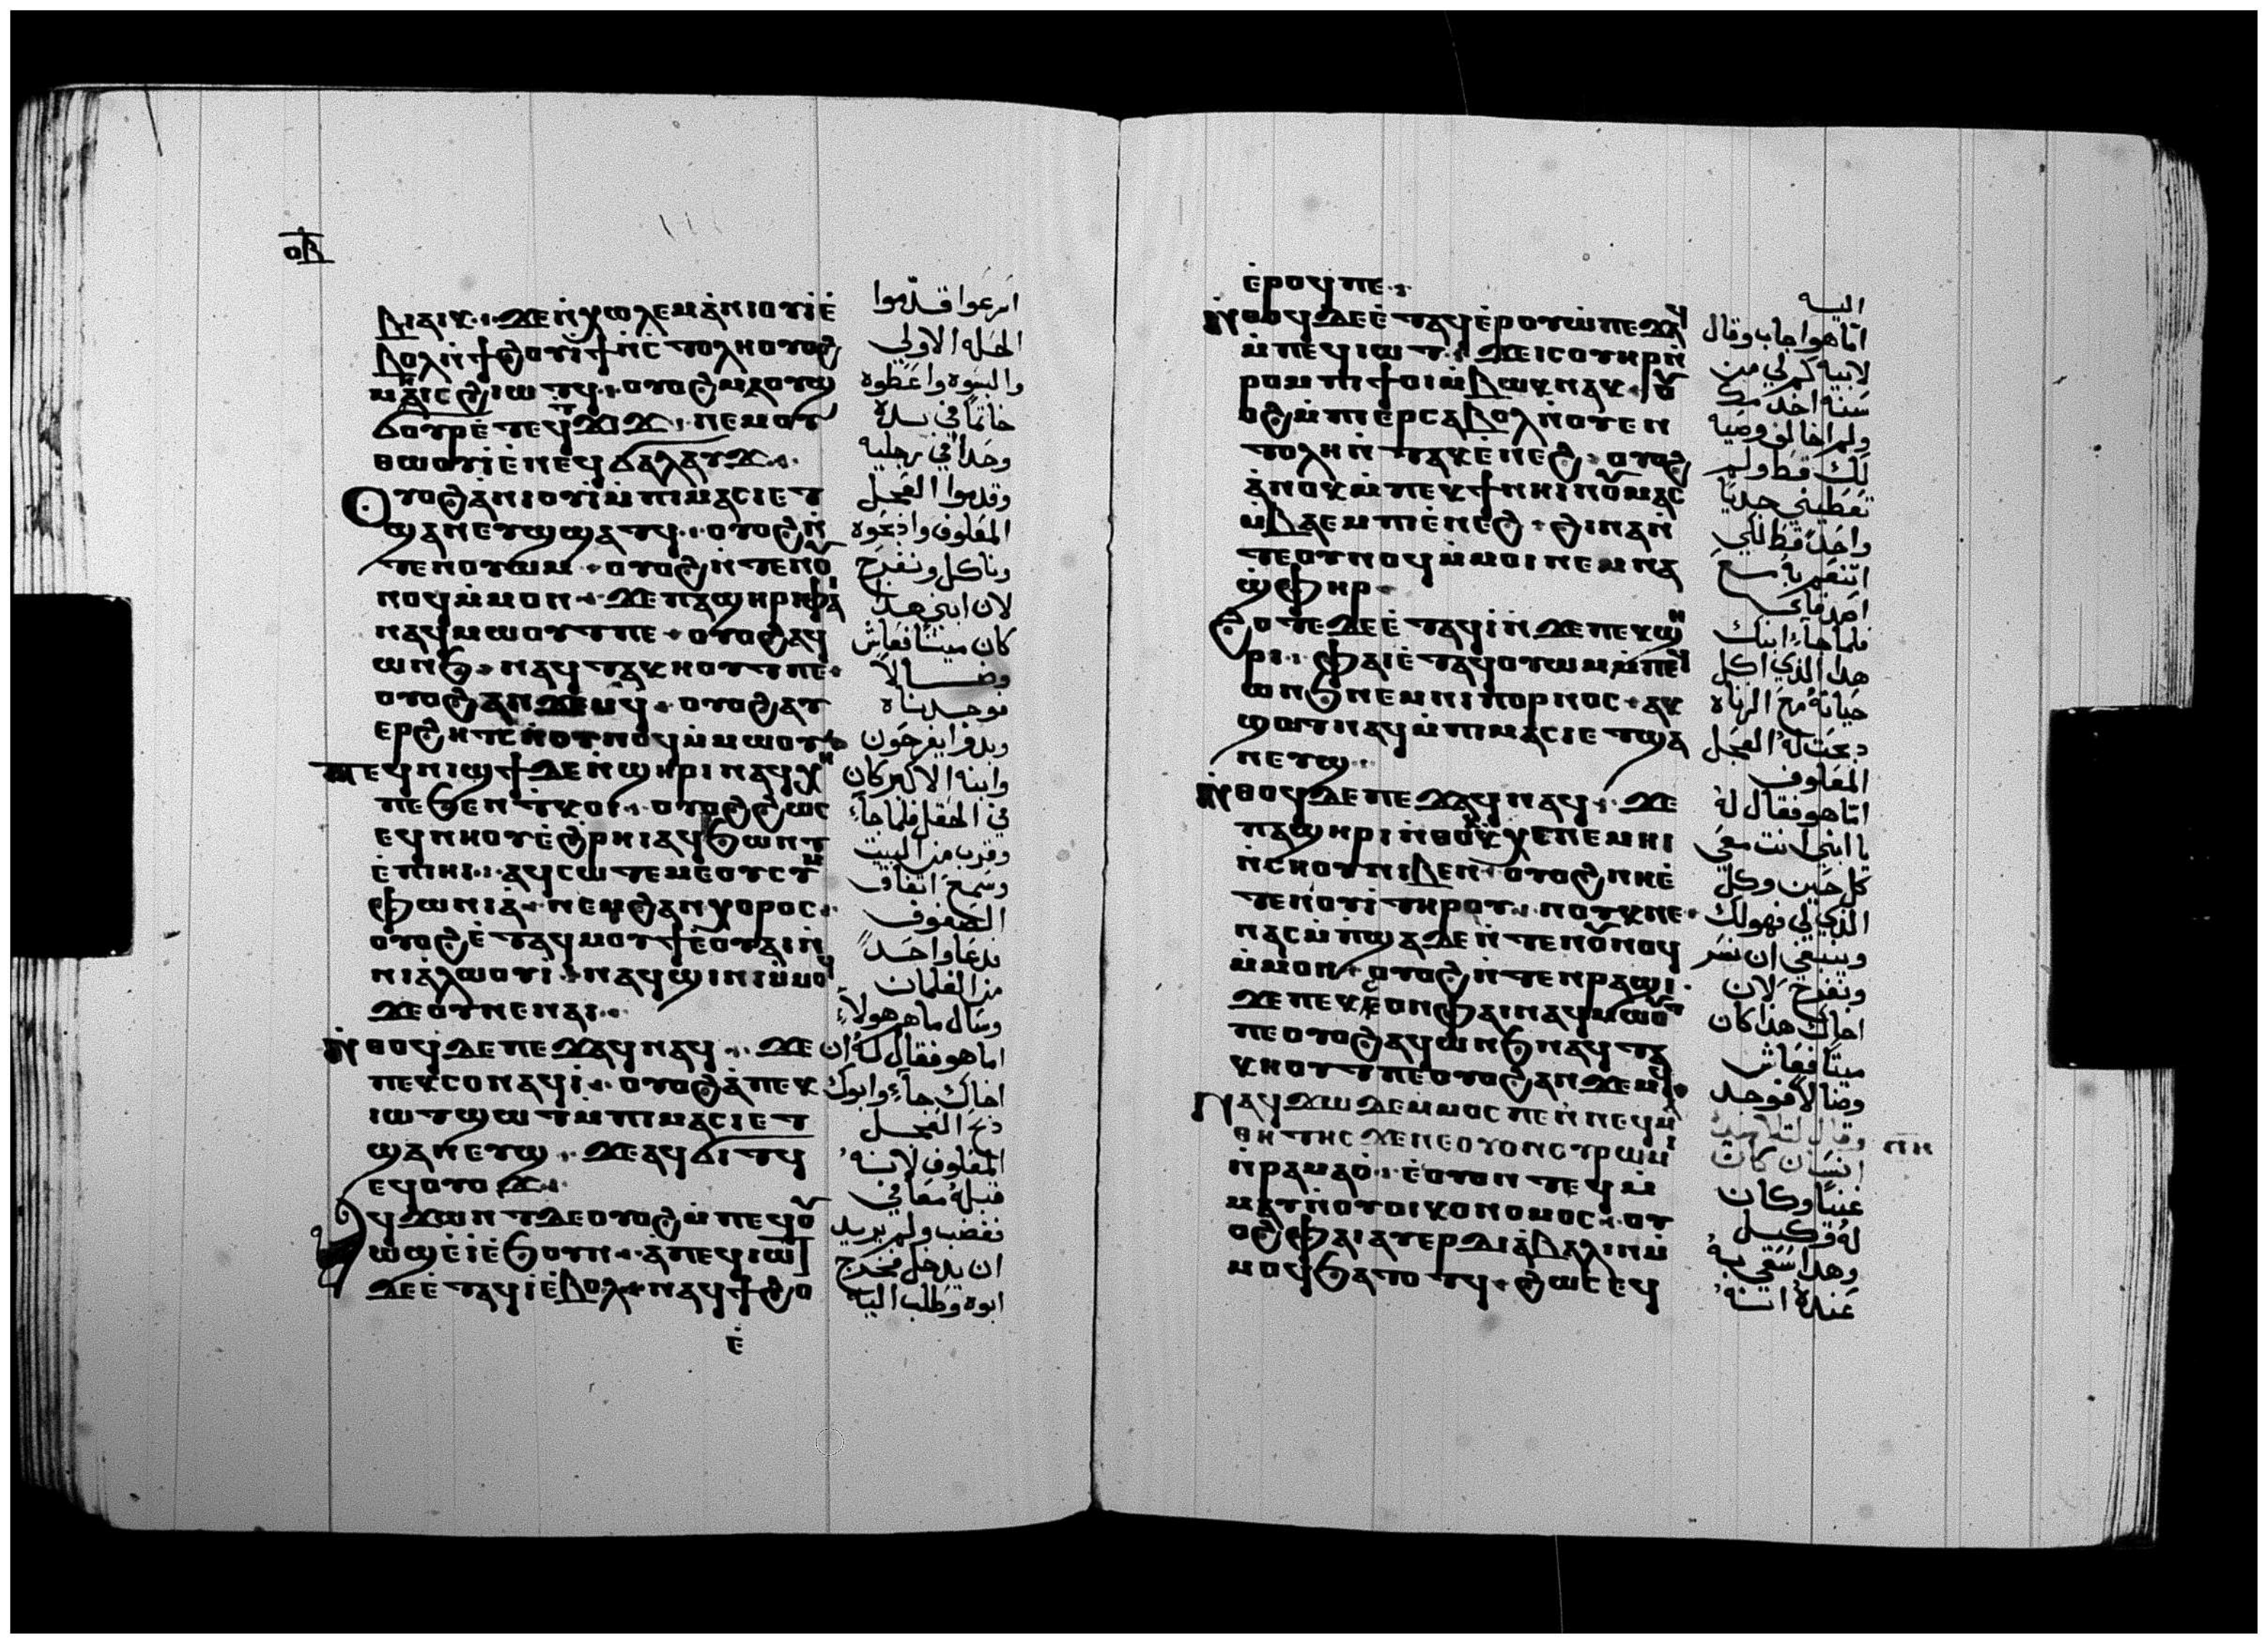 ⲟⲃ
ⲃⲓⲁⲓⲕ· ϫⲉⲛ̀ⲭⲱⲗⲉⲙⲁ̀ⲛⲓⲟⲩⲓ̀ⲉ̀
ⲃⲟⲗⲛ̀ϯϩⲟⲩⲓ̀ϯⲛ̀ⲥⲧⲟⲗⲏⲟⲩⲟϩ
ⲙⲏⲓⲥϩⲓⲱⲧϥ· ⲟⲩⲟϩⲙⲁⲟⲩϣ
ϭⲟⲩⲣⲉ̀ⲧⲉϥϫⲓϫ· ⲛⲉⲙⲟⲩ
ⲑⲱⲟⲩⲓ̀ⲉ̀ⲛⲉϥϭⲁⲗⲁⲩϫ·
ⲟⲩⲟϩⲁ̀ⲛⲓⲟⲩⲓ̀ⲙ̀ⲡⲓⲙⲁⲥⲓⲉⲧ
ϣⲁⲛⲉⲩϣϣⲁⲧϥ· ⲟⲩⲟϩⲛ̀
ⲧⲉⲛⲟⲩⲱⲙ· ⲟⲩⲟϩⲛ̀ⲧⲉⲛⲟⲩ
ⲛⲟϥⲙ̀ⲙⲟⲛ· ϫⲉⲡⲁϣⲏⲣⲓⲫⲁⲓ
ⲛⲁϥⲙⲱⲟⲩⲧⲡⲉ· ⲟⲩⲟϩⲁϥ
ⲱⲛϧ· ⲛⲁϥⲧⲁⲕⲏⲟⲩⲧⲡⲉ·
ⲟⲩⲟϩⲁⲛϫⲉⲙϥ· ⲟⲩⲟϩⲁⲩ
ⲉⲣϩⲏⲧⲥⲛ̀ⲟⲩⲛⲟϥⲙ̀ⲙⲱⲟⲩ·
ⲡⲉϥⲛⲓϣϯⲇⲉⲛ̀ϣⲏⲣⲓⲛⲁϥⲭⲏ
ⲡⲉϧⲉⲛⲧⲕⲟⲓ· ⲟⲩⲟϩϩⲱⲥ
ⲉϥⲛⲏⲟⲩⲉ̀ϩⲣⲏⲓⲁϥϧⲱⲛⲧ
ⲉ̀ⲡⲓⲏⲓ· ⲁϥⲥⲱⲧⲉⲙⲉⲟⲩⲥⲩⲙ
ⲫⲱⲛⲓⲁ̀· ⲛⲉⲙϩⲁⲛⲭⲟⲣⲟⲥ·
ⲟⲩⲟϩⲉ̀ⲧⲁϥⲙⲟⲩϯⲉ̀ⲟⲩⲁⲓⲛ̀
ⲛⲓⲁ̀ⲗⲱⲟⲩⲓ̀· ⲛⲁϥϣⲓⲛⲓⲙ̀ⲙⲟϥ
ϫⲉⲟⲩⲛⲉⲛⲁⲓ·
ⲛ̀ⲑⲟϥⲇⲉⲡⲉϫⲁϥⲛⲁϥ· ϫⲉ
ⲡⲉⲕⲥⲟⲛⲁϥⲓ̀· ⲟⲩⲟϩⲁ̀ⲡⲉⲕ
ⲓⲱⲧϣⲱⲧⲙ̀ⲡⲓⲙⲁⲥⲓⲉⲧ
ϣⲁⲛⲉⲩϣ· ϫⲉⲁϥϭⲓⲧϥ
ⲉϥⲟⲩⲟϫ·
ⲁϥϫⲱⲛⲧⲇⲉⲟⲩⲟϩⲙ̀ⲡⲉϥⲟⲩ
ⲱϣⲉ̀ⲓ̀ⲉ̀ϧⲟⲩⲛ· ⲁ̀ⲡⲉϥⲓⲱⲧ
ⲇⲉⲉ̀ⲧⲁϥⲓ̀ⲉ̀ⲃⲟⲗ· ⲛⲁϥϯϩⲟ
ⲉ̀
اسرعوا قدّموا
الحله الاولي
والبسوه واعطوه
خاتمًا في يده
وحدا في رجليه
وقدموا العجل
المعلوف واذبحوه
وناكل ونفرح
لان ابني هذا
كان ميتًا فعاش
وضالا
فوجدناه
وبدوا يفرحون
وابنه الاكبر كان
في الحقل فلما جاءَ
وقرب من البيت
وسمع اتفاق
الصفوف
فدعا واحدً
من الغلمان
وسال ما هر هولاءِ
اما هو فقال له ان
اخاك جاءَ وابوك
ذبح العجل
المعلوف لانه
قبله معافي
فغضب ولم يريد
ان يدخل فخرج
ابوه وطلب اليه
ⲉ̀ⲣⲟϥⲡⲉ·
ⲛ̀ⲑⲟϥⲇⲉⲉ̀ⲧⲁϥⲉ̀ⲣⲟⲩⲱ̀ⲡⲉϫⲁϥ
ⲙ̀ⲡⲉϥⲓⲱⲧ· ϫⲉⲓⲥⲟⲩⲏⲣⲛ̀
ⲣⲟⲙⲡⲓϯⲟⲓⲙ̀ⲃⲱⲕⲛⲁⲕ· ⲟⲩ
ⲟϩⲙ̀ⲡⲓⲉⲣⲥⲁⲃⲟⲗⲛ̀ⲟⲩⲉⲛ
ⲧⲟⲗⲏⲛ̀ⲧⲁⲕⲉ̀ⲛⲉϩ· ⲟⲩⲟϩ
ⲁ̀ⲛⲟⲕⲙ̀ⲡⲉⲕϯⲛⲏⲓⲛⲟⲩⲙⲁⲥ
ⲙ̀ⲃⲁⲉⲙⲡⲓⲉ̀ⲛⲉϩ· ϩⲓⲛⲁⲛ̀
ⲧⲉⲟⲩⲛⲟϥⲙ̀ⲙⲟⲓⲛⲉⲙⲛⲁ
ϣ̀ⲫⲏⲣ·
ϩⲟⲧⲉⲇⲉⲉ̀ⲧⲁϥⲓ̀ⲛ̀ϫⲉⲡⲉⲕϣⲏ
ⲣⲓ· ⲫⲁⲓⲉ̀ⲧⲁϥⲟⲩⲱⲙⲙ̀ⲡⲉϥ
ⲱⲛϧⲛⲉⲙⲛⲓⲡⲟⲣⲛⲟⲥ· ⲁⲕ
ϣⲱⲧⲛⲁϥⲙ̀ⲡⲓⲙⲁⲥⲓⲉⲧϣⲁ
ⲛⲉⲩϣ·
ⲛ̀ⲑⲟϥⲇⲉⲡⲉϫⲁϥⲛⲁϥ· ϫⲉ
ⲡⲁϣⲏⲣⲓⲛ̀ⲑⲟⲕⲭⲉⲛⲉⲙⲏⲓ
ⲛ̀ⲥⲏⲟⲩⲛⲓⲃⲉⲛ· ⲟⲩⲟϩⲛⲏⲉ̀
ⲧⲉⲛⲟⲩⲓ̀ⲧⲏⲣⲟⲩ· ⲛⲟⲩⲕⲛⲉ·
ⲛⲁⲥⲙ̀ⲡϣⲁⲇⲉⲛ̀ⲧⲉⲛⲟⲩⲛⲟϥ
ⲙ̀ⲙⲟⲛ· ⲟⲩⲟϩⲛ̀ⲧⲉⲛⲣⲁϣⲓ·
ϫⲉⲡⲉⲕⲥⲟⲛⲫⲁⲓⲛⲁϥⲙⲱⲟⲩⲧ
ⲡⲉⲟⲩⲟϩⲁϥⲱⲛϧⲛⲁϥⲧⲁ
ⲕⲏⲟⲩⲧⲡⲉⲟⲩⲟϩⲁⲛϫⲉⲙϥ·
ⲛⲁϥϫⲱⲇⲉⲙ̀ⲙⲟⲥⲡⲉⲛ̀ⲛⲉϥⲙⲁ
ⲑⲏⲧⲏⲥϫⲉⲛⲉⲟⲩⲟⲛⲟⲩⲣⲱⲙⲓ
ⲛ̀ⲣⲁⲙⲁⲟ̀· ⲉ̀ⲟⲩⲟⲛⲧⲉϥⲙ̀
ⲙⲁⲩⲛ̀ⲟⲩⲟⲓⲕⲟⲛⲟⲙⲟⲥ· ⲟⲩ
ⲟϩⲫⲁⲓⲁⲩⲉⲣⲇⲓⲁ̀ⲃⲁⲗⲓⲛⲙ̀
ⲙⲟϥϧⲁⲧⲟⲧϥ· ϩⲱⲥⲉϥ
اليه
امّا هو اجاب وقال
لابيه كم لي من
سنه اخدمك
ولم اخالف وصية
لك قط ولم
تعطيني جديًا
واحدً قط لكي
اتنعم به مع
اصدقاي
فلما جاءَ ابنك
هذا الذي اكل
حياته مع الزناه
ذبحت له العجل
المعلوف
امّا هو فقال له
يا ابني انت معي
كل حين وكل
الذي لي فهو لك
وينبغي ان نسر
ونفرح لان
اخاك هذا كان
ميتًا فعاش
وضالا فوجد
وقال لتلاميذه
انسان كان
غنيًا وكان
له وكيل
وهذا سُعي به
عنده انه
ⲡⲏ